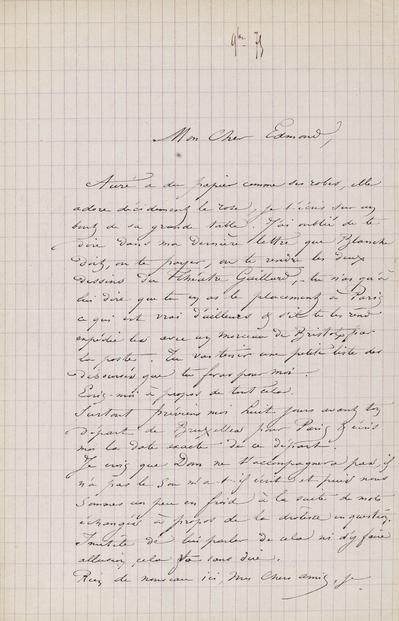 9bre 75
Mon Cher Edmond,
Auré a du papier comme ses robes, elle
adore décidément le rose, je t'écris sur un
bout de sa grande table. J'ai oublié de te
dire dans ma dernière lettre que Blanche
doit, ou te payer, ou te rendre les deux
dessins du Théâtre Gaillard, - tu n'as qu'à
lui dire que tu en as le placement à Paris
ce qui est vrai d'ailleurs & s'il te les rend
expédie les avec un morceau de Bristol par
la poste. Tu vas tenir une petite liste des
déboursés que tu feras pour moi.
Ecris-moi à propos de tout cela.
Surtout préviens moi huit jours avant ton
départ de Bruxelles pour Paris & écris
moi la date exacte de ce départ.
Je crois que Dom ne t'accompagnera pas, il
n'a pas le son m'a-t-il écrit et puis nous
sommes un peu en froid à la suite de mots
échangés à propos de la drôlesse en question.
Inutile de lui parler de cela ni d'y faire
allusion, cela va sans dire.
Rien de nouveau ici, mes chers amis, je